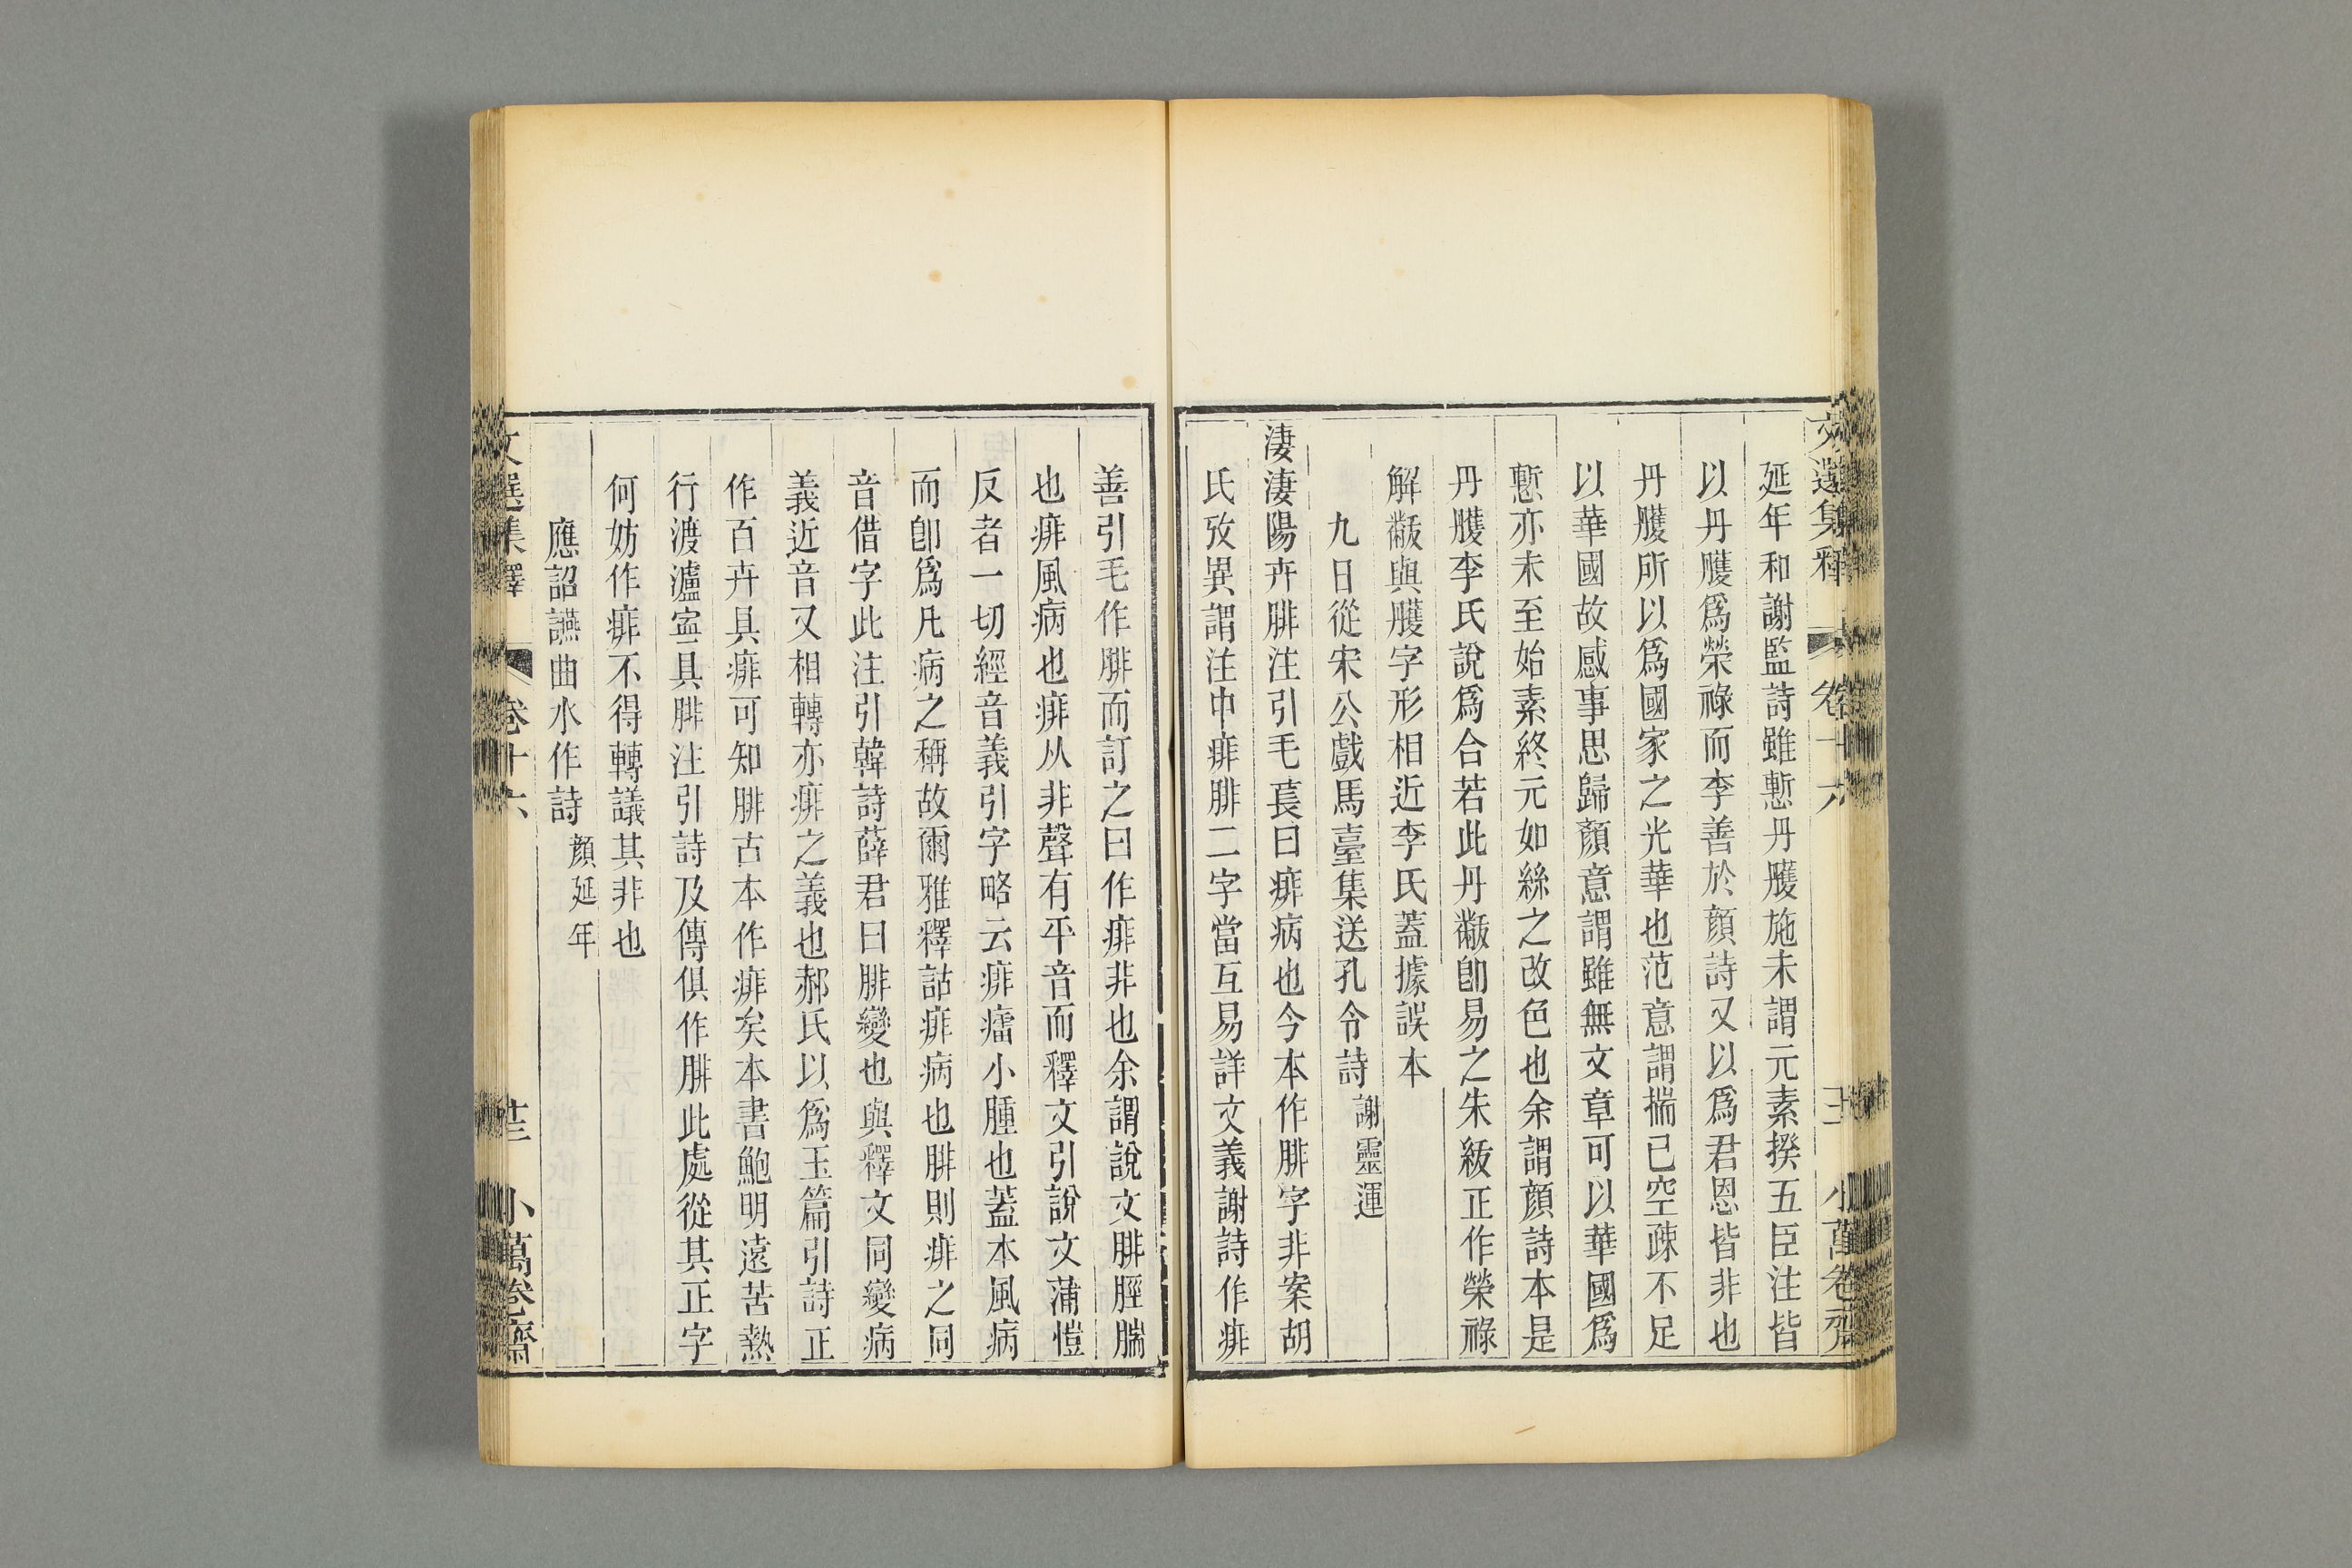 文選集釋 卷十六 小萬卷齋
延年和謝監詩雖慙丹雘施未謂元素揆五臣注皆
以丹雘爲榮祿而李善於顔詩又以爲君恩皆非也
丹雘所以爲國家之光華也范意謂揣已空疎不足
以華國故感事思歸顔意謂雖無文章可以華國爲
慙亦未至始素終元如絲之改色也余謂顔詩本是
丹雘李氏說爲合若此丹黻卽易之朱紱正作榮祿
解黻與雘字形相近李氏蓋據誤本
九日從宋公戲馬臺集送孔令詩 謝靈運
淒淒陽卉腓注引毛萇曰痱病也今本作腓字非案胡
氏攷異謂注中痱腓二字當互易詳文義謝詩作痱
善引毛作腓而訂之曰作痱非也余謂說文腓脛腨
也痱風病也痱从非聲有平音而釋文引說文蒲愷
反者一切經音義引字略云痱癗小腫也蓋本風病
而卽爲凡病之稱故爾雅釋詁痱病也腓則痱之同
音借字此注引韓詩薛君曰腓變也與釋文同變病
義近音又相轉亦痱之義也郝氏以爲玉篇引詩正
作百卉具痱可知腓古本作痱矣本書鮑明遠苦熱
行渡瀘寍具腓注引詩及傳俱作腓此處從其正字
何妨作痱不得轉議其非也
應詔讌曲水作詩 顔延年
文選集釋 卷十六 小萬卷齋